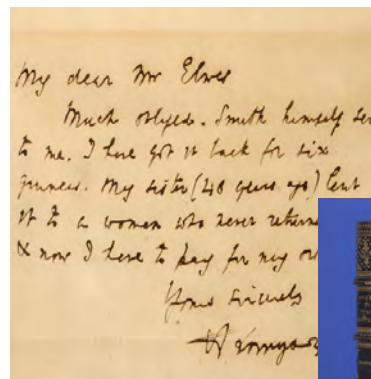 My dear Mr Elwes
Much obliged. Smith himself sen
to me. I have got it back for six
guineas. My sister (40 years ago) lent
it to a woman who never returne
& now I have to pay for my ow
Yours sincerely
A Tennyson